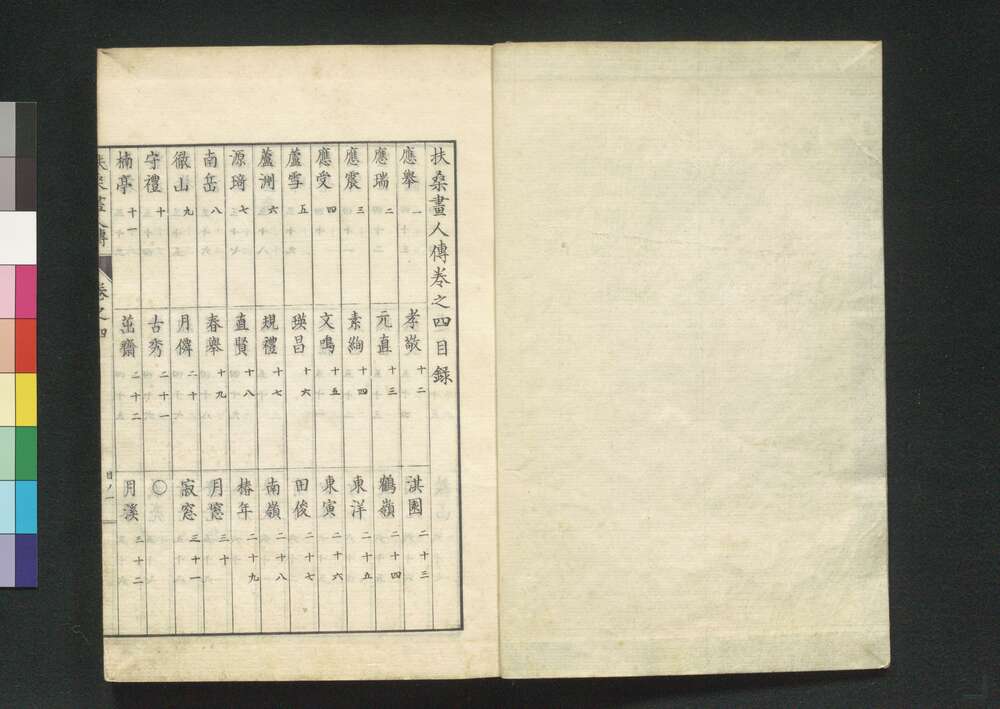 扶桑畫人傳卷之四目錄
應舉 一
應瑞 二
應震 三
應受 四
蘆雪 五
蘆洲 六
源琦 七
南岳 八
徹山 九
守禮 十
楠亭 十一
孝敬 十二
元直 十三
素絢 十四
文鳴 十五
瑛昌 十六
規禮 十七
直賢 十八
春舉 十九
月僊 二十
古秀 二十一
茁齋 二十二
淇園 二十三
鶴嶺 二十四
東洋 二十五
東寅 二十六
田俊 二十七
南嶺 二十八
椿年 二十九
月窓 三十
寂窓 三十一
○
月溪 三十二
卷之四
目ノ一